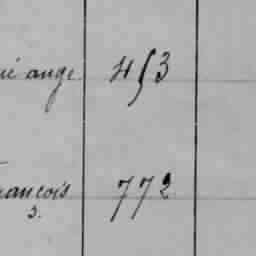 ange 453
rançois 772